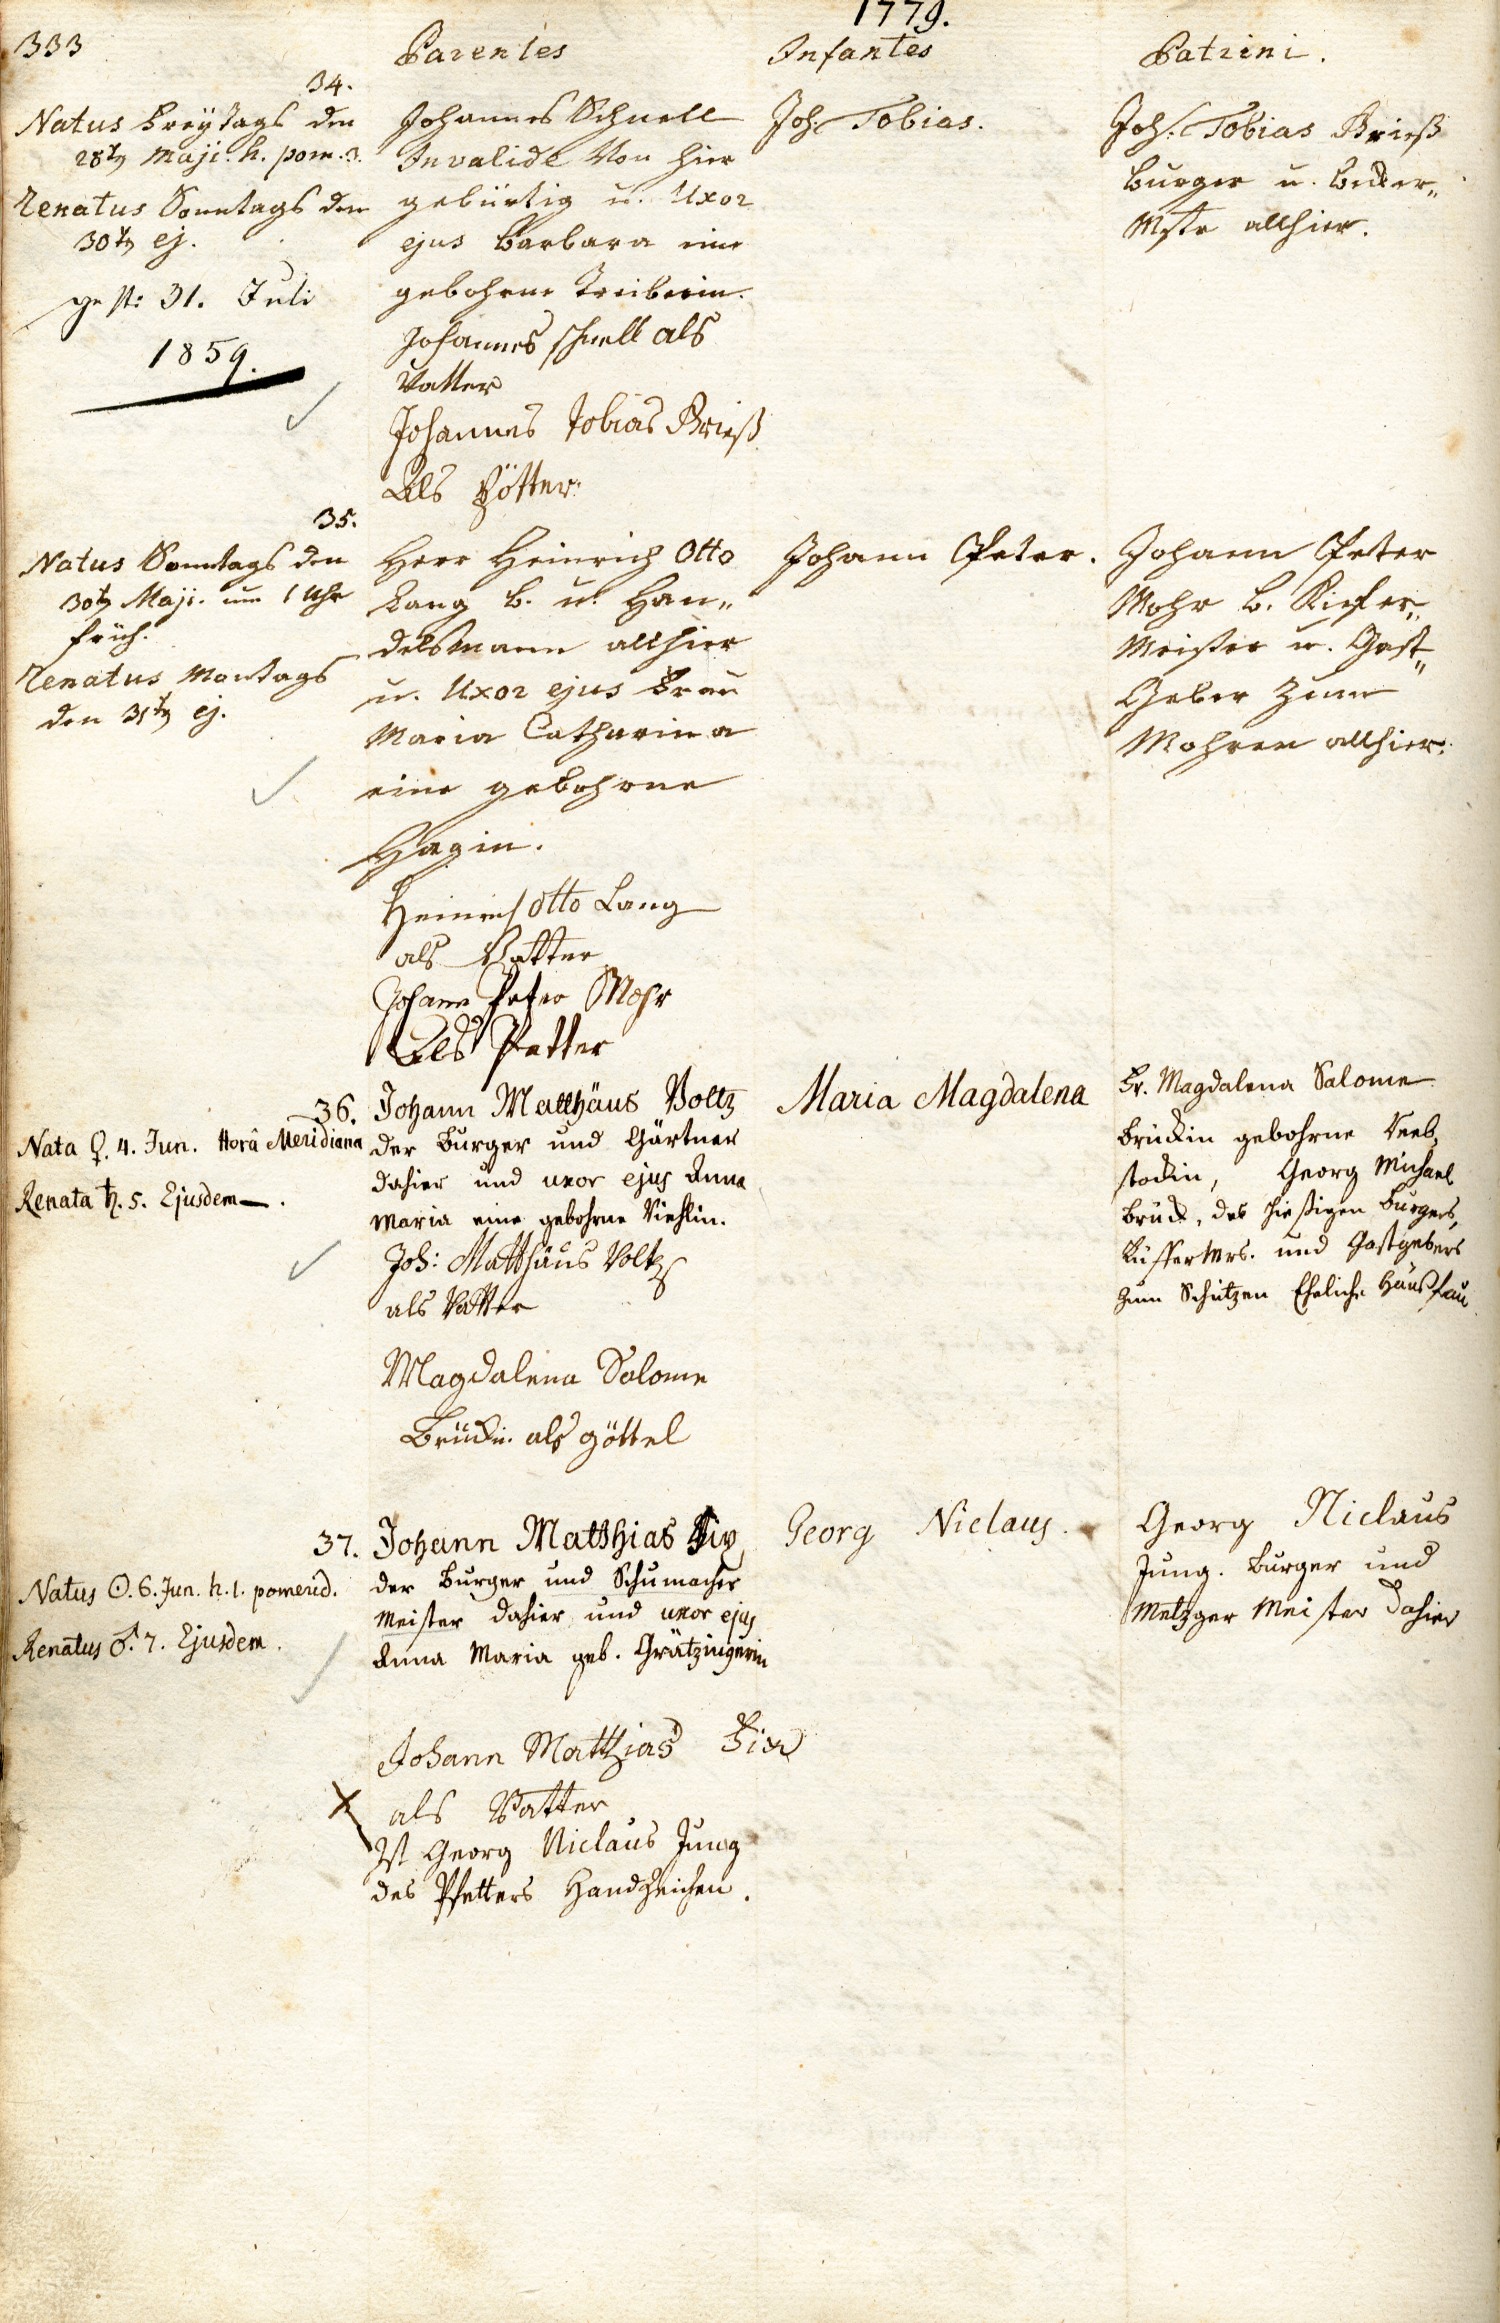 1779.
333
Parentes
Infantes
Patrini.
34.
Natus Freytags den
28tg Maji. h. pom. 3.
Renatus Sonntags den
30tg ej.
gest: 31. Juli
1859.
Johannes Schnell
Invalide von hier
gebürtig u. Uxor
ejus Barbara eine
gebohrne Treiberin.
Johannes schnell als
Vatter
Johannes Tobias Brieß
Als Pötter:
Joh. Tobias.
Joh. Tobias Brieß
Burger u. Becker„
Mstr allhier.
35.
Natus Sonntags den
30tg Maji. um 1 Uhr
früh.
Renatus Montags
den 31tg ej.
Herr Heinrich Otto
Lang b. u. Han„
delsmann allhier
u. Uxor ejus Frau
Maria Catharina
eine gebohrne
Hagin.
Heinrich Otto Lang
als Vatter
Johann Peter Mohr
Als Petter
Johann Peter.
Johann Peter
Mohr b. Kiefer„
Meister u. Gast„
Geber zum
Mohren allhier.
36.
Nata ♀. 4. Jun. Horâ Meridiana
Renata ♄. 5. Ejusdem.
Johann Matthäus Voltz
der Burger und Gärtner
dahier und uxor ejus Anna
Maria eine gebohrne Viehlin.
Joh: Matthäus Voltz
als Vatter
Magdalena Salome
Brückin als göttel
Maria Magdalena
Fr. Magdalena Salome
Brückin gebohrne Reeb„
stockin, Georg Michael
Brück, des hießigen Burgers,
Küffer Mrs. und Gastgebers
zum Schützen Eheliche Haußfrau
37.
Natus ☉. 6. Jun. h. 1. pomerid.
Renatus ♂. 7. Ejusdem.
Johann Matthias Fix
der Burger und Schumacher
Meister dahier und uxor ejus
Anna Maria geb. Grätzingerin
Johann Matthias Fix
als Vatter
X
Ist Georg Niclaus Jung
des Pfetters Handzeichen.
Georg Niclaus.
Georg Niclaus
Jung. Burger und
Metzger Meister dahier